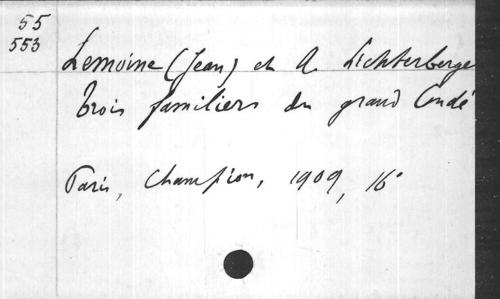 55
553
Lemoine (Jean) et A. Lichterberge
Trois familiers du grand Condé
Paris, Champion, 1909, 16°